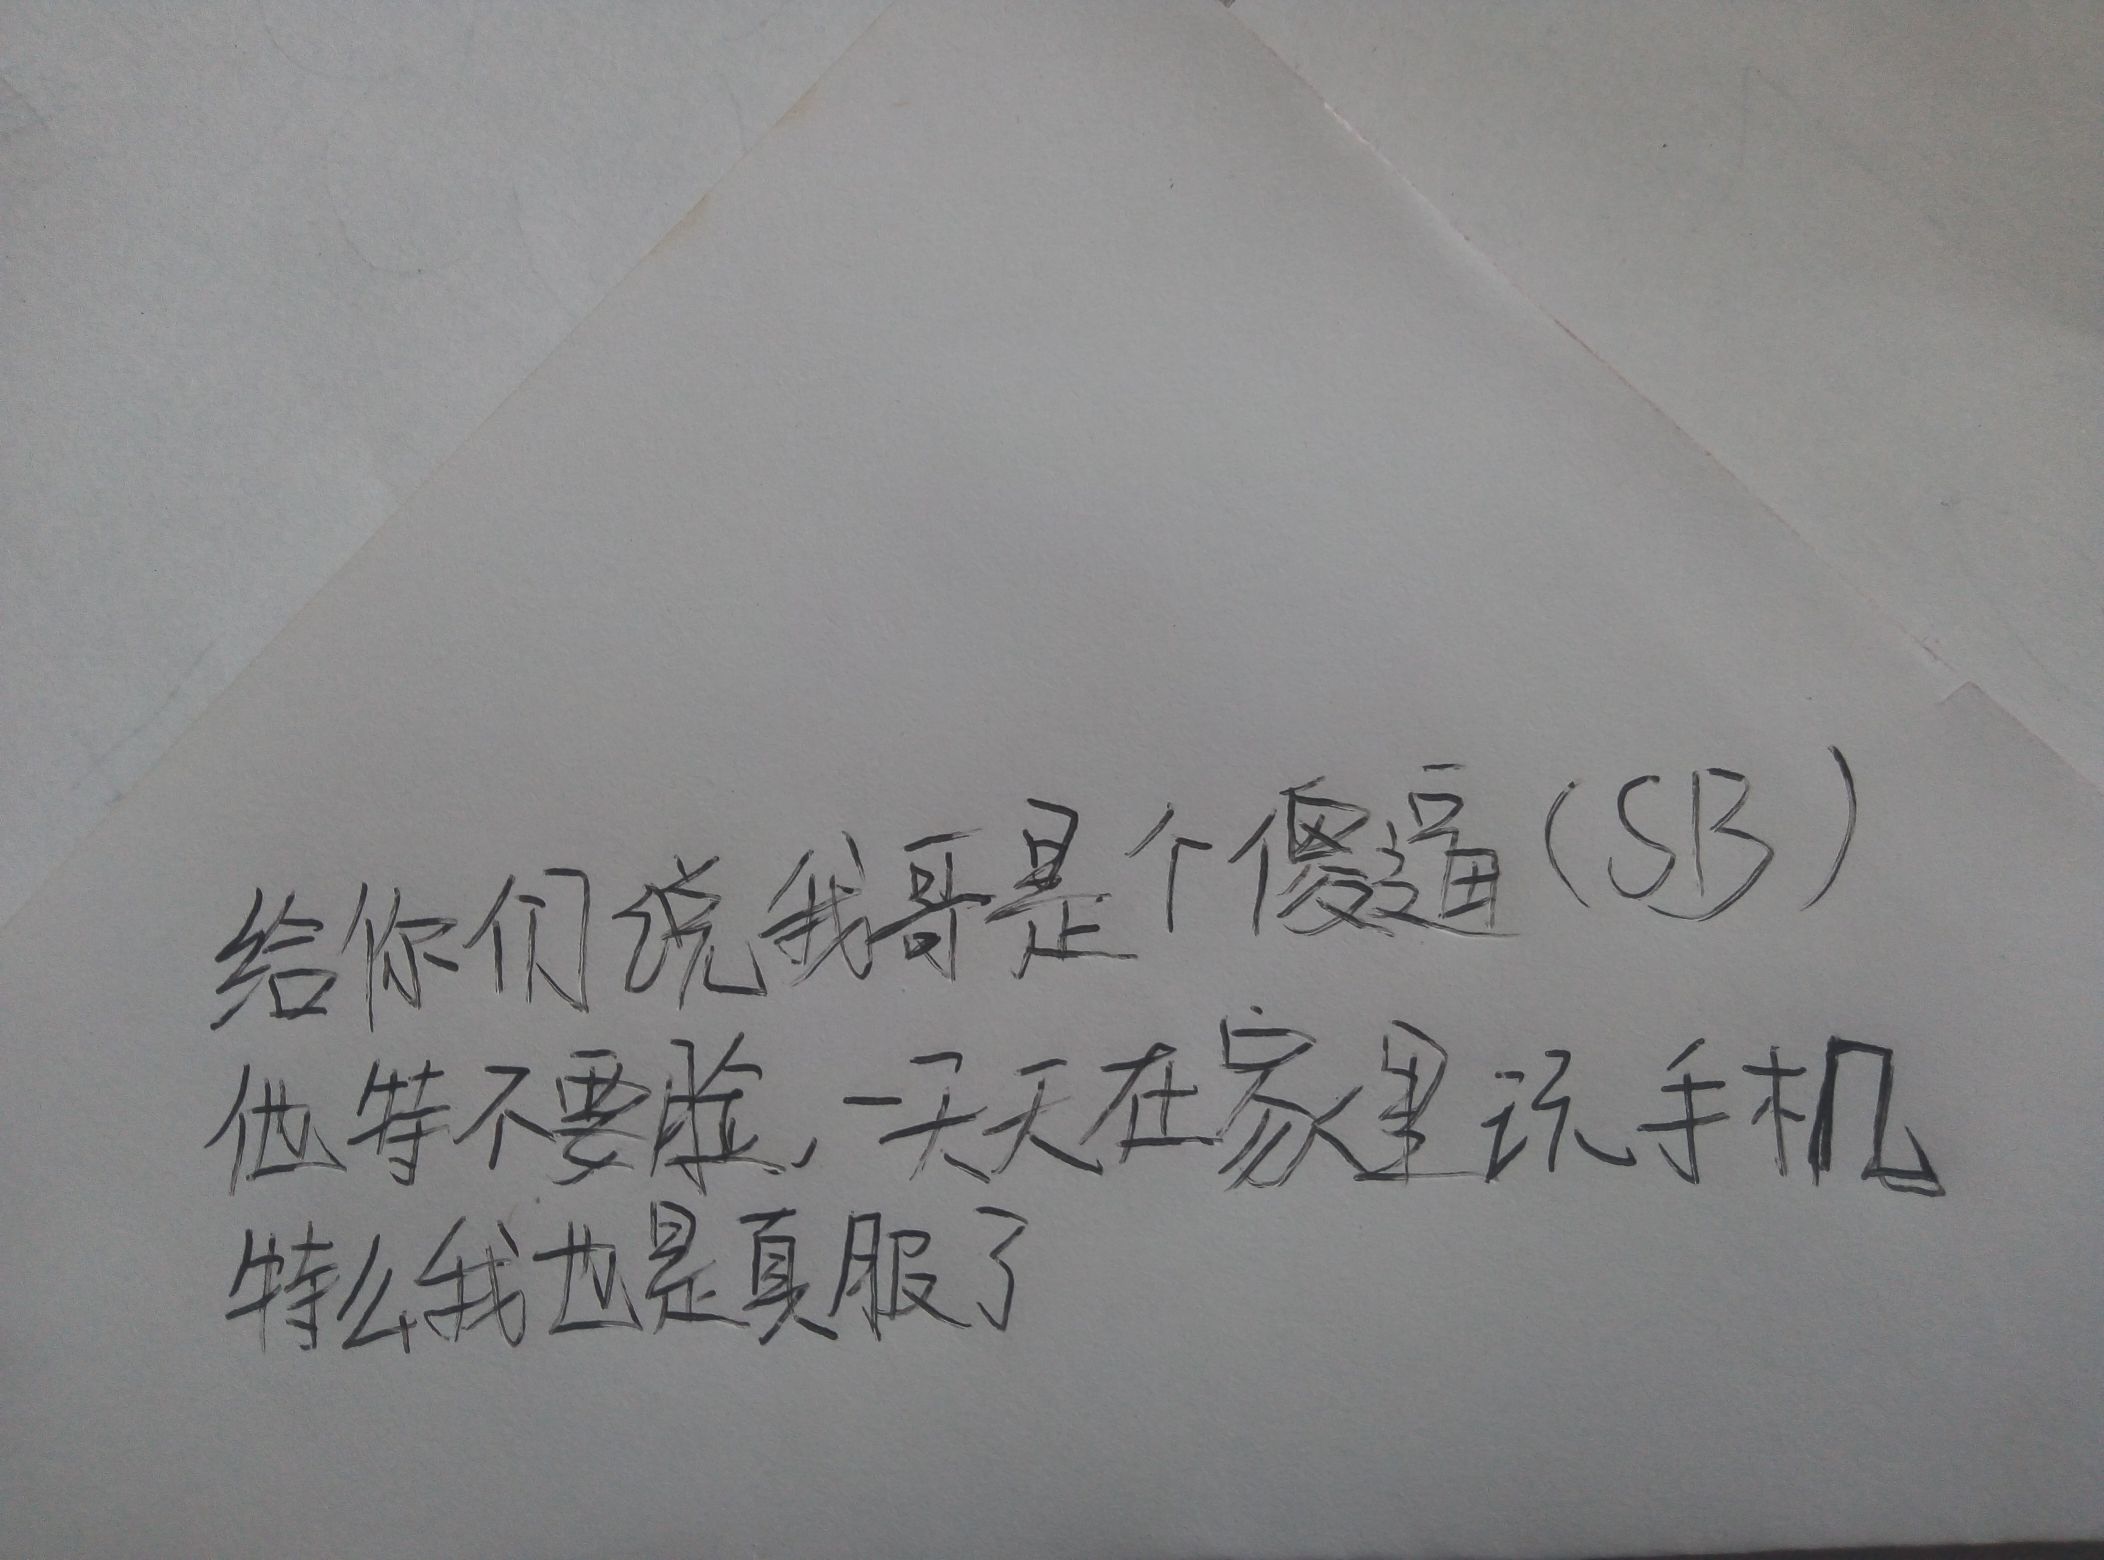 给你们说我哥是个傻逼(SB)
他特不要脸,一天天在家里玩手机
特么我也是真服了